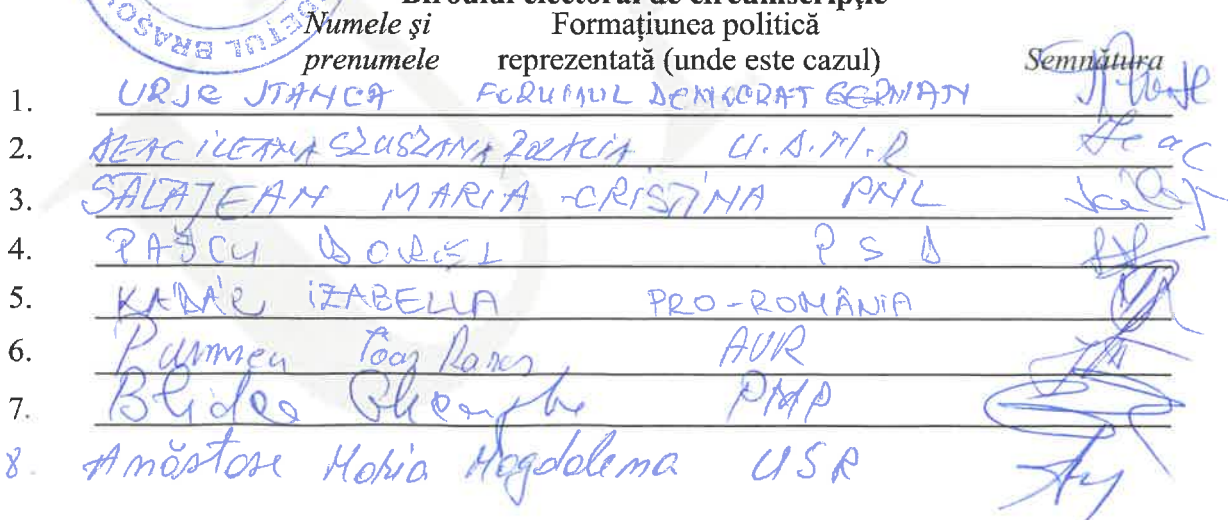 Biroul electoral de circumscripție
JUDEȚUL BRAȘO
Numele și Formațiunea politică
prenumele reprezentată (unde este cazul) Semnătura
1. URSE STANCA FORUMUL DEMOCRAT GERMAN
2. DEAC ILEANA ZSUZSANA U.D.M.R
3. SĂLĂJEAN MARIA-CRISTINA PNL
4. PASCU DOREL PSD
5. KADÁR IZABELLA PRO-ROMÂNIA
6. Ioan Rareș AUR
7. Blidea Gheorghe PMP
8. Anăstase Maria Magdalena USR